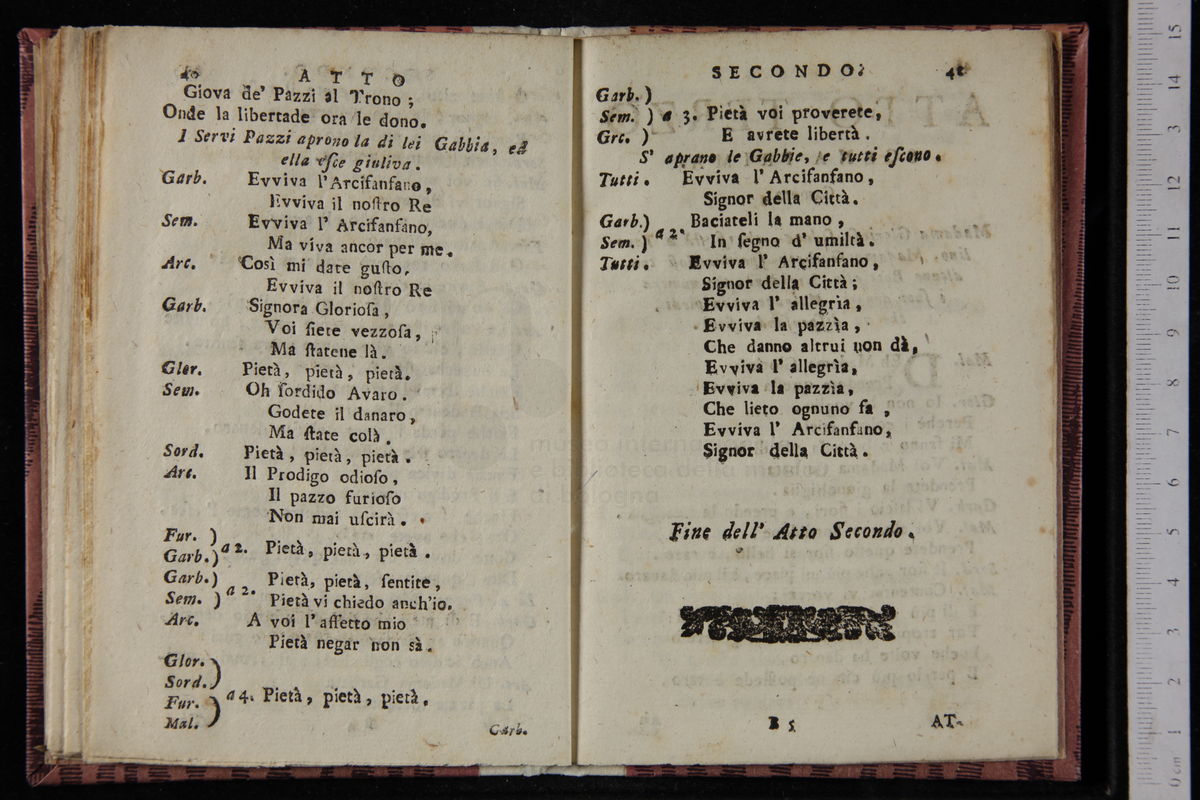 40 ATTO
Giova de' Pazzi al Trono ;
Onde la libertade ora le dono.
I Servi Pazzi aprono la di lei Gabbia, ed
ella eſce giuliva.
Garb. Evviva l'Arcifanfano,
Evviva il noſtro Re
Sem. Evviva l' Arcifanfano,
Ma viva ancor per me.
Arc. Così mi date guſto,
Evviva il noſtro Re
Garb. Signora Glorioſa,
Voi ſiete vezzoſa,
Ma ſtatene là.
Glor. Pietà, pietà, pietà.
Sem. Oh ſordido Avaro.
Godete il danaro,
Ma ſtate colà.
Sord. Pietà, pietà, pietà.
Arc. Il Prodigo odioſo,
Il pazzo furioſo
Non mai uſcirà.
Fur. )
Garb. ) a 2. Pietà, pietà, pietà.
Garb. ) Pietà, pietà, ſentite,
Sem. ) a 2. Pietà vi chiedo anch'io.
Arc. A voi l'affetto mio
Pietà negar non sà.
Glor. )
Sord. )
Fur. ) a 4. Pietà, pietà, pietà.
Mal. )
Garb.
SECONDO. 41
Garb. )
Sem. ) a 3. Pietà voi proverete,
Grc. ) E avrete libertà.
S' aprano le Gabbie, e tutti eſcono.
Tutti. Evviva l' Arcifanfano,
Signor della Città.
Garb. ) Baciateli la mano,
Sem. ) a 2. In ſegno d' umiltà.
Tutti. Evviva l' Arcifanfano,
Signor della Città;
Evviva l' allegrìa,
Evviva la pazzìa,
Che danno altrui non dà,
Evviva l' allegrìa,
Evviva la pazzìa,
Che lieto ognuno fa,
Evviva l' Arcifanfano,
Signor della Città.
Fine dell' Atto Secondo.
B 5 AT-
museo interna
e biblioteca della musica
di bologna
0 cm 1 2 3 4 5 6 7 8 9 10 11 12 13 14 15